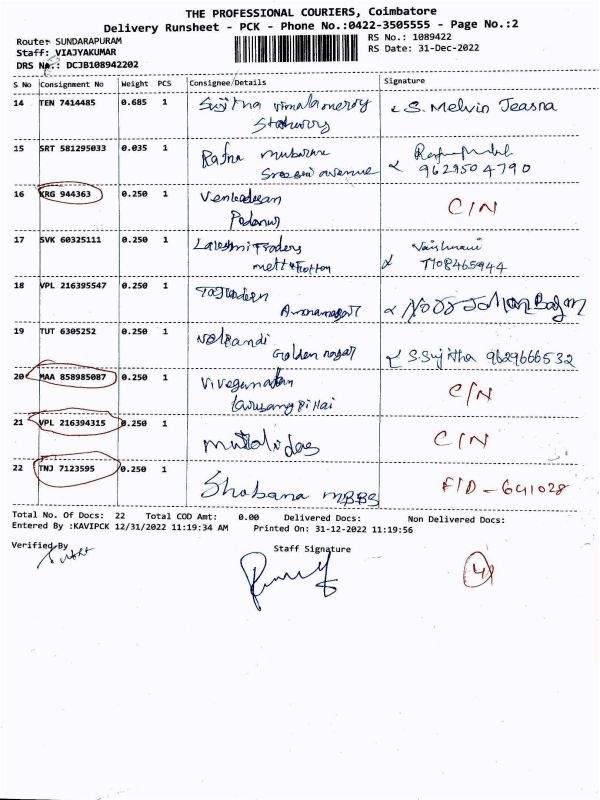 THE PROFESSIONAL COURIERS, Coimbatore
Delivery Runsheet - PCK - Phone No.:0422-3505555 - Page No.:2
Route: SUNDARAPURAM
RS No.: 1089422
Staff: VIAJYAKUMAR
RS Date: 31-Dec-2022
DRS No.: DCJB108942202
S No Consignment No Weight PCS Consignee/Details Signature
14 TEN 7414485 0.685 1 S. Melvin Jeasna
15 SRT 581295033 0.035 1 Ratna
avenue 9629504790
16 KRG 944363 0.250 1 C/N
17 SVK 60325111 0.250 1 Lakshmi Traders Vaishnavi
7708465944
18 VPL 216395547 0.250 1
19 TUT 6305252 0.250 1
Golden nagar S.Sujitha 9629666532
20 MAA 858985087 0.250 1 C/N
21 VPL 216394315 0.250 1 C/N
22 TNJ 7123595 0.250 1 Shobana MBBS F/D - 641028
Total No. Of Docs: 22 Total COD Amt: 0.00 Delivered Docs: Non Delivered Docs:
Entered By :KAVIPCK 12/31/2022 11:19:34 AM Printed On: 31-12-2022 11:19:56
Verified By Staff Signature
4